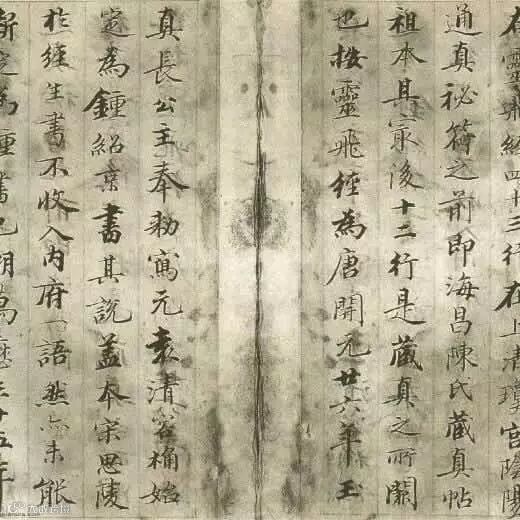 右靈飛經四十三行在上清瓊宮陰陽
通真祕符之前即海昌陳氏藏真帖
祖本其冣後十二行是藏真之所闕
也按靈飛經為唐開元廿六年玉
真長公主奉勑寫元袁清容桷始
定為鍾紹京書其說蓋本宋思陵
於經生書不收入內府一語然亦未能
定為鍾書也明萬歷三十五年